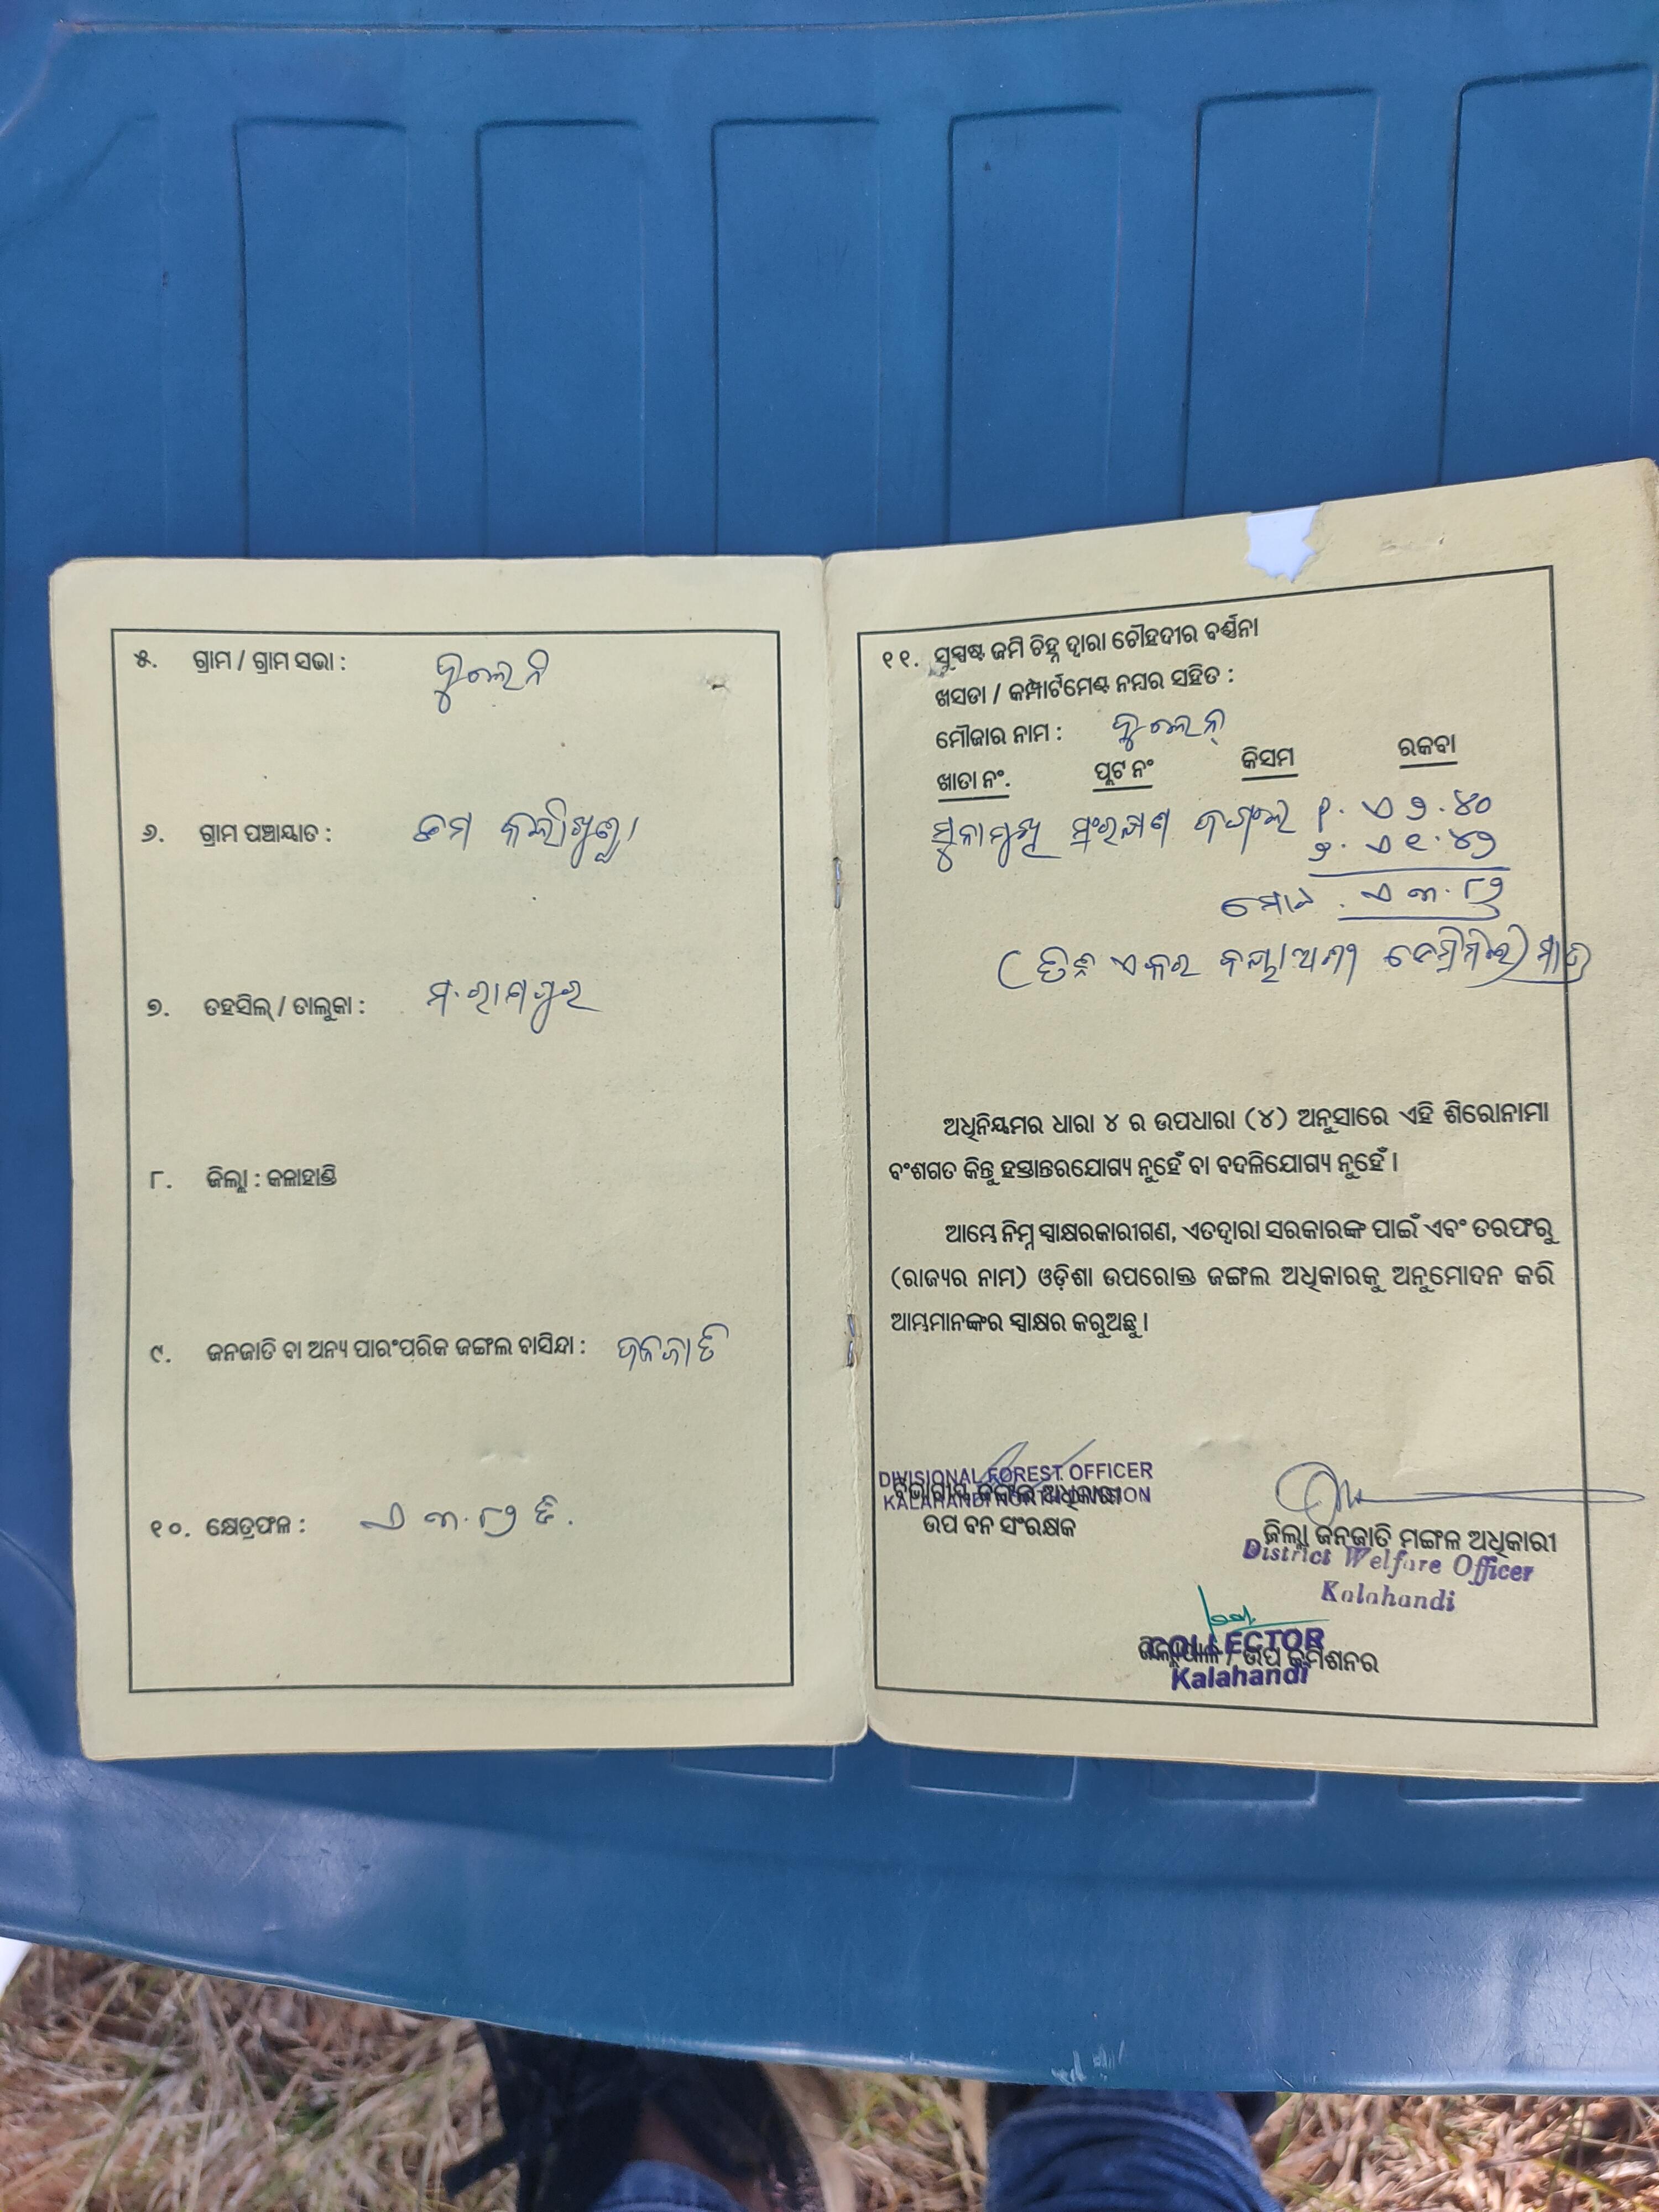 ୫. ଗ୍ରାମ / ଗ୍ରାମ ସଭା :
୬. ଗ୍ରାମ ପଞ୍ଚାୟାତ :
୭. ତହସିଲ୍ / ତାଲୁକା : ମ.ରାମପୁର
୮. ଜିଲ୍ଲା : କଳାହାଣ୍ଡି
୯. ଜନଜାତି ବା ଅନ୍ୟ ପାରଂପରିକ ଜଙ୍ଗଲ ବାସିନ୍ଦା : ଜନଜାତି
୧୦. କ୍ଷେତ୍ରଫଳ : ଏ ୩.୮୨ ଡି.
୧୧. ସୁସ୍ପଷ୍ଟ ଜମି ଚିହ୍ନ ଦ୍ୱାରା ଚୌହଦୀର ବର୍ଣ୍ଣନା
ଖସଡା / କମ୍ପାର୍ଟମେଣ୍ଟ ନମ୍ବର ସହିତ :
ମୌଜାର ନାମ :
ଖାତା ନଂ. ପ୍ଲଟ ନଂ କିସମ ରକବା
ସଂରକ୍ଷଣ ଜଙ୍ଗଲ ୧. ଏ ୨.୪୦
୨. ଏ ୧.୪୨
ମୋଟ. ଏ ୩.୮୨
(ତିନି ଏକର ବୟାଅଶୀ ଡେସିମିଲି) ମାତ୍ର
ଅଧିନିୟମର ଧାରା ୪ ର ଉପଧାରା (୪) ଅନୁସାରେ ଏହି ଶିରୋନାମା
ବଂଶଗତ କିନ୍ତୁ ହସ୍ତାନ୍ତରଯୋଗ୍ୟ ନୁହେଁ ବା ବଦଳିଯୋଗ୍ୟ ନୁହେଁ ।
ଆମ୍ଭେ ନିମ୍ନ ସ୍ୱାକ୍ଷରକାରୀଗଣ, ଏତଦ୍ୱାରା ସରକାରଙ୍କ ପାଇଁ ଏବଂ ତରଫରୁ
(ରାଜ୍ୟର ନାମ) ଓଡ଼ିଶା ଉପରୋକ୍ତ ଜଙ୍ଗଲ ଅଧିକାରକୁ ଅନୁମୋଦନ କରି
ଆମ୍ଭମାନଙ୍କର ସ୍ୱାକ୍ଷର କରୁଅଛୁ ।
DIVISIONAL FOREST OFFICER
ବିଭାଗୀୟ ଜଙ୍ଗଲ ଅଧିକାରୀ
KALAHANDI NORTH DIVISION
ଉପ ବନ ସଂରକ୍ଷକ
ଜିଲ୍ଲା ଜନଜାତି ମଙ୍ଗଳ ଅଧିକାରୀ
District Welfare Officer
Kalahandi
COLLECTOR
ଜିଲ୍ଲାପାଳ / ଉପ କମିଶନର
Kalahandi